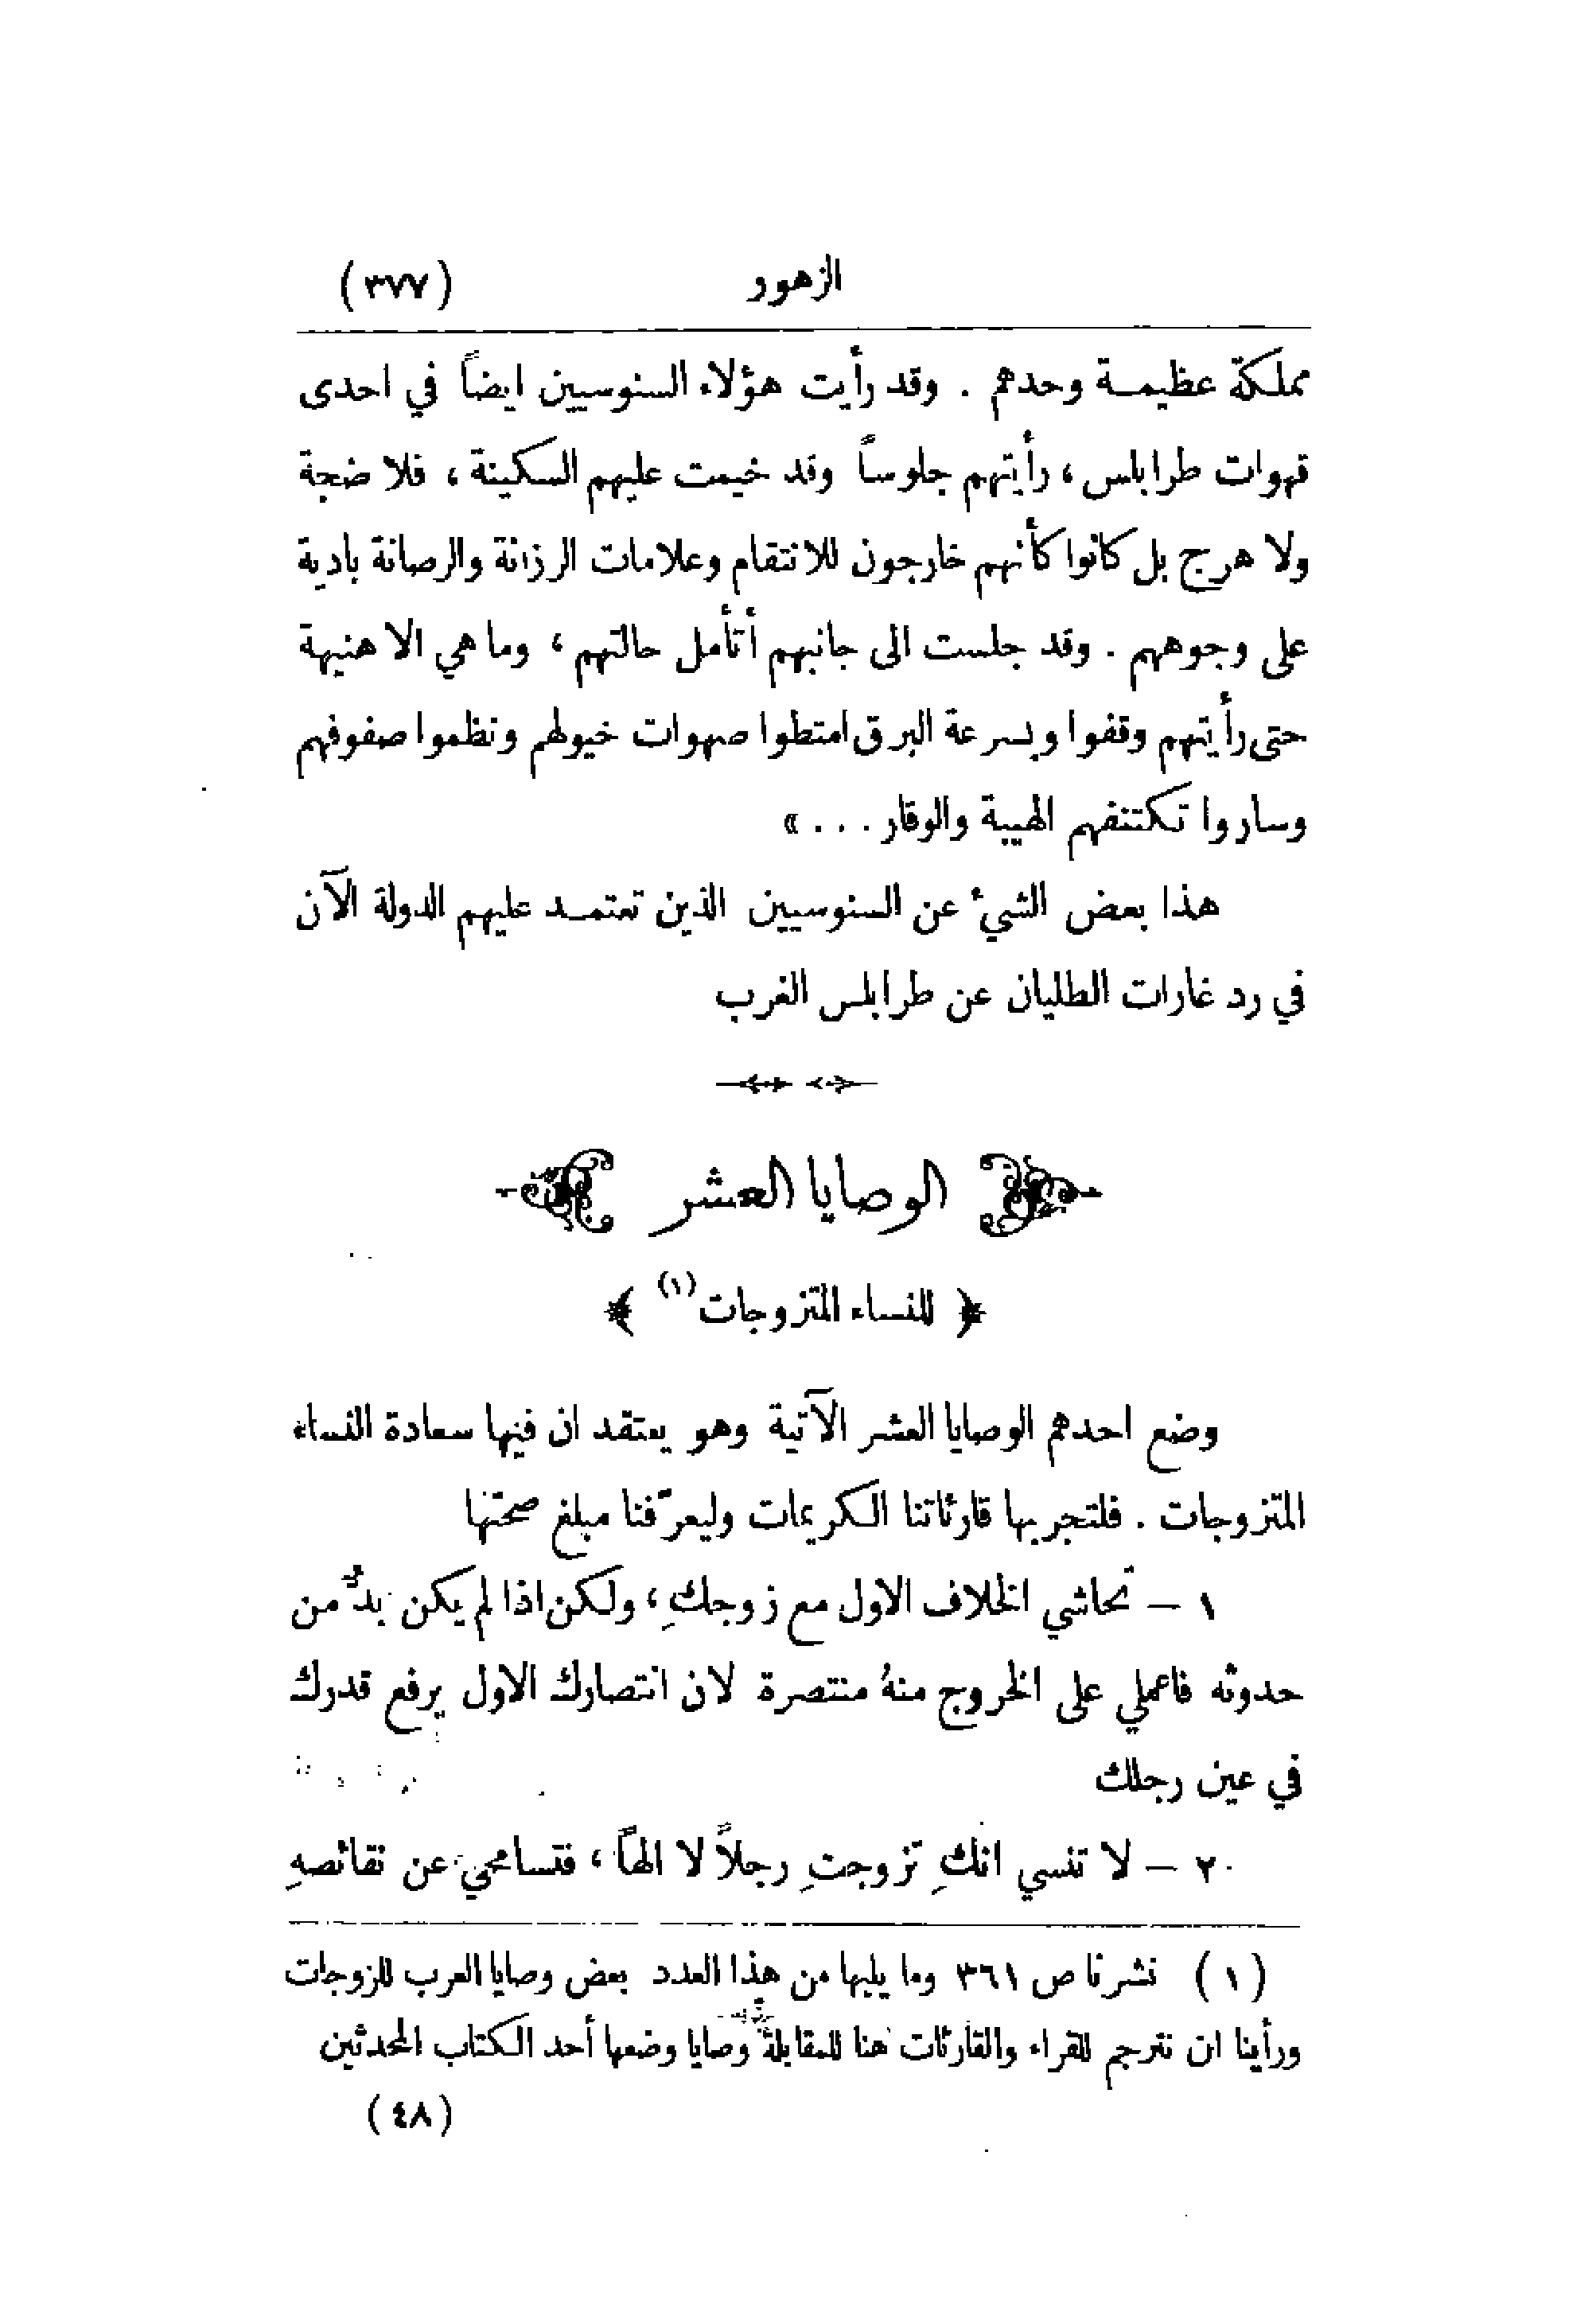 الزهور (٣٧٧)
مملكة عظيمة وحدهم . وقد رأيت هؤلاء السنوسيين ايضاً في احدى
قهوات طرابلس ، رأيتهم جلوساً وقد خيمت عليهم السكينة ، فلا ضجة
ولا هرج بل كانوا كأنهم خارجون للانتقام وعلامات الرزانة والرصانة بادية
على وجوههم . وقد جلست الى جانبهم أتأمل حالتهم ، وما هي الا هنيهة
حتى رأيتهم وقفوا وبسرعة البرق امتطوا صهوات خيولهم ونظموا صفوفهم
وساروا تكتنفهم الهيبة والوقار . . . »
هذا بعض الشيء عن السنوسيين الذين تعتمد عليهم الدولة الآن
في رد غارات الطليان عن طرابلس الغرب
الوصايا العشر
﴿ للنساء المتزوجات (١) ﴾
وضع احدهم الوصايا العشر الآتية وهو يعتقد ان فيها سعادة النساء
المتزوجات . فلتجربها قارئاتنا الكريمات وليعرّفنا مبلغ صحتها
١ – تحاشي الخلاف الاول مع زوجكِ ، ولكن اذا لم يكن بدٌّ من
حدوثه فاعملي على الخروج منهُ منتصرة لان انتصارك الاول يرفع قدرك
في عين رجلك
٢ – لا تنسي انكِ تزوجتِ رجلاً لا الهاً ، فتسامحي عن نقائصهِ
(١) نشرنا ص ٣٦١ وما يليها من هذا العدد بعض وصايا العرب للزوجات
ورأينا ان نترجم للقراء والقارئات هنا للمقابلة وصايا وضعها أحد الكتاب المحدثين
(٤٨)